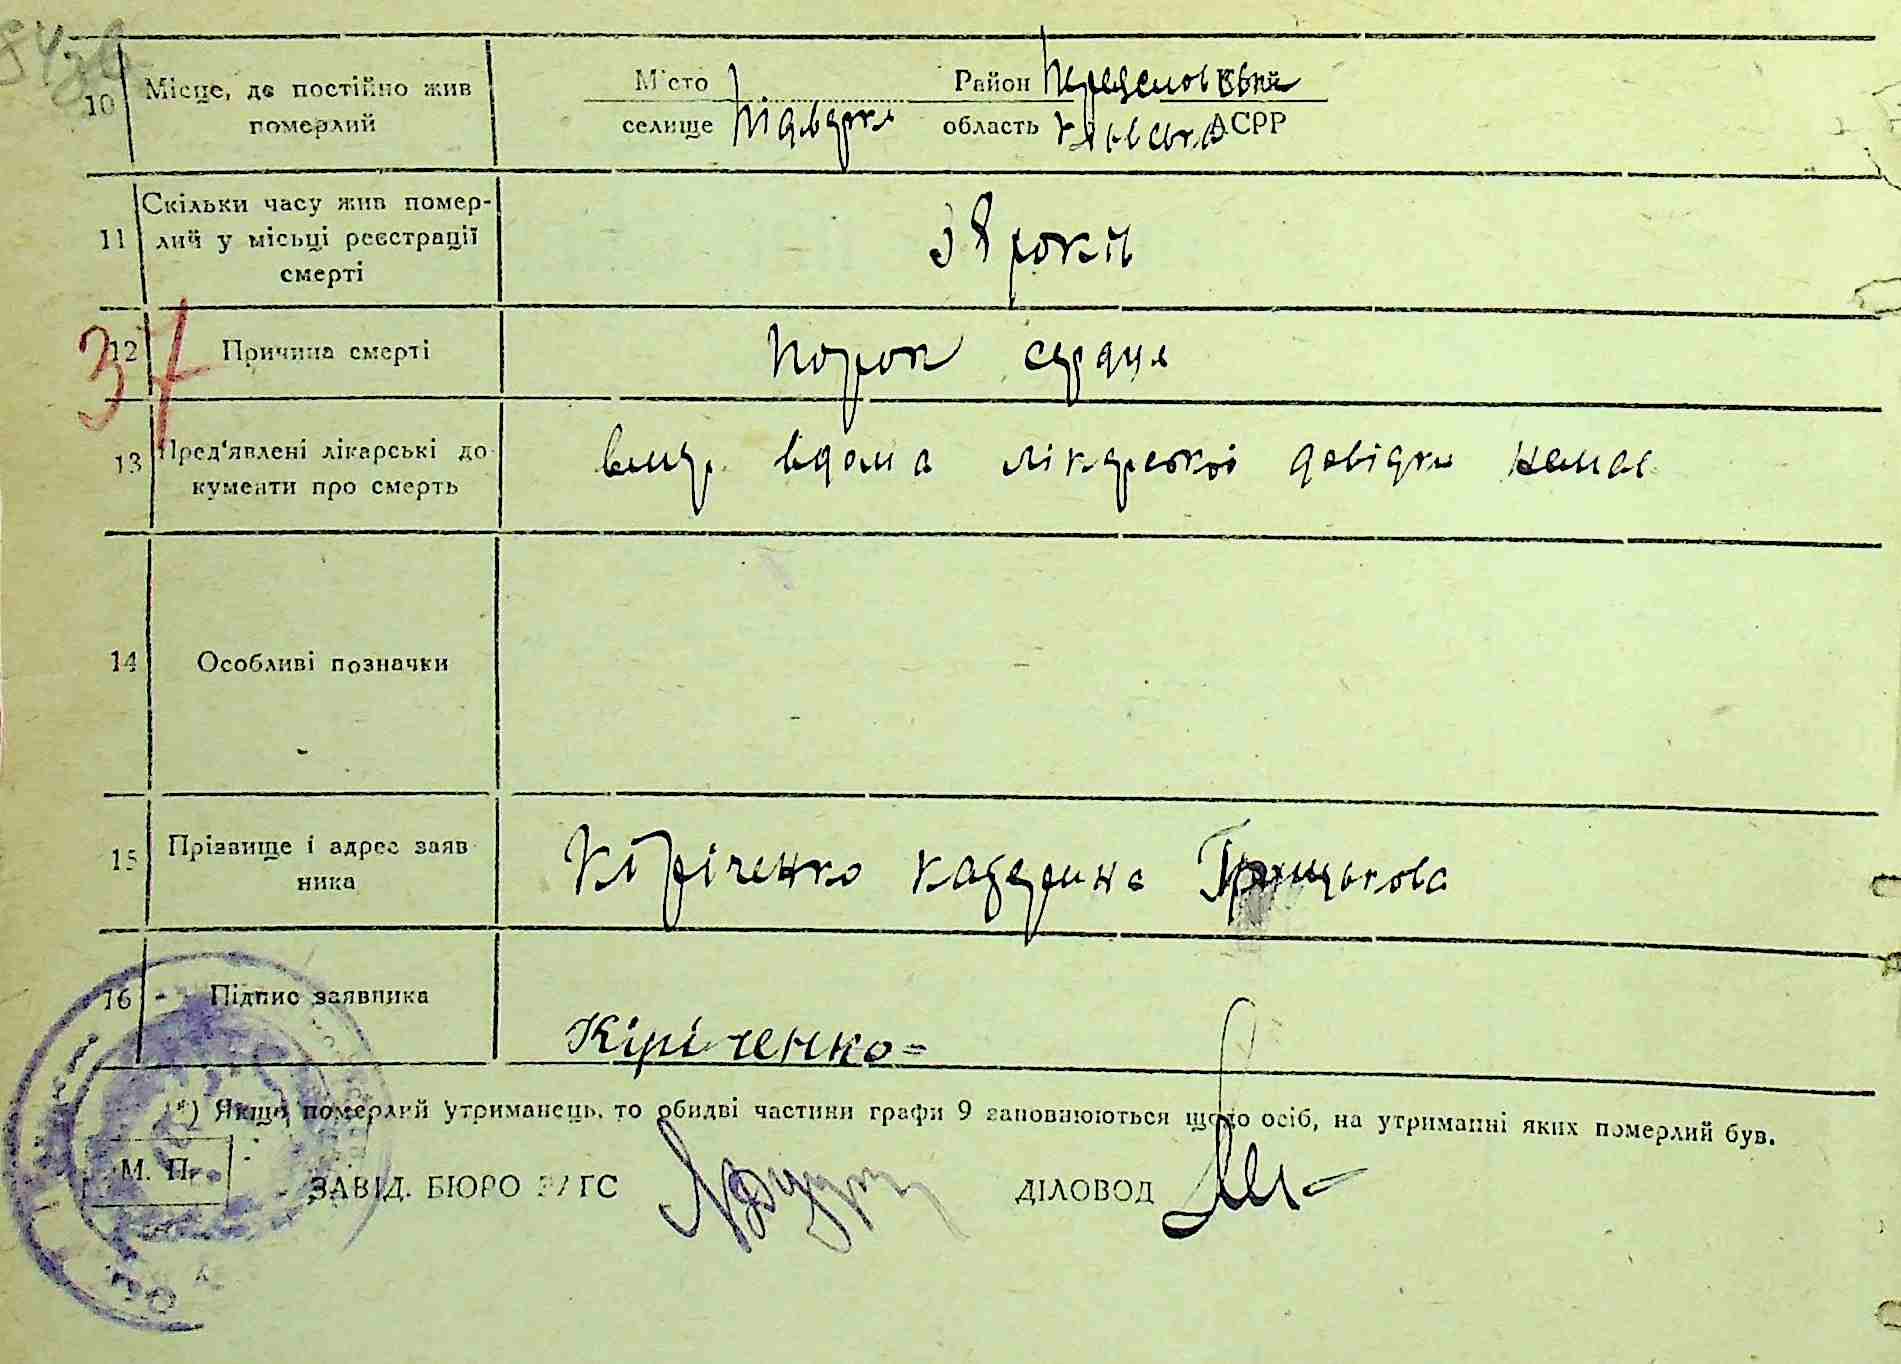 10 Місце, де постійно жив М'сто Район Переяславський
померлий селище Підварки область Київська АСРР
Скільки часу жив помер-
11 лий у місьці реєстрації 38 років
смерті
37
12 Причина смерті Порок сердця
13 Пред'явлені лікарські до- вмер вдома лікарської довідки немає
кументи про смерть
14 Особливі позначки
15 Прізвище і адрес заяв- Кіріченко Катерина Грицькова
ника
16 Підпис заявника Кіріченко
*) Якщо померлий утриманець, то обидві частини графи 9 заповнюються щодо осіб, на утриманні яких померлий був.
М. П. ЗАВІД. БЮРО ЗАГС ДІЛОВОД